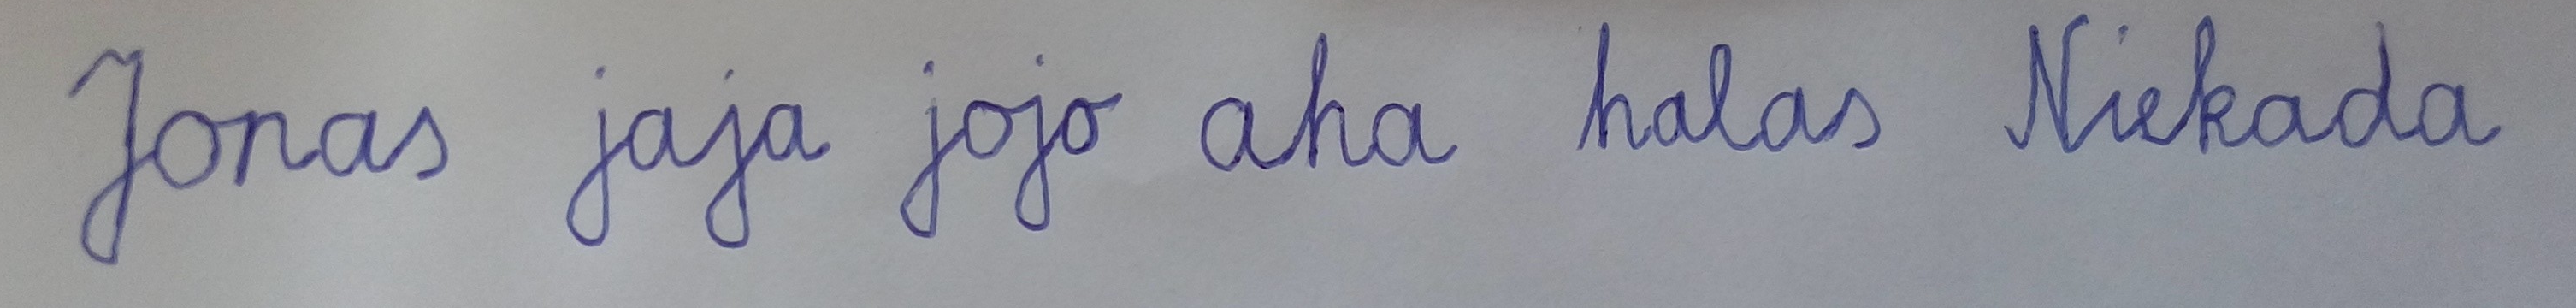 Jonas jaja jojo aha halas Niekada